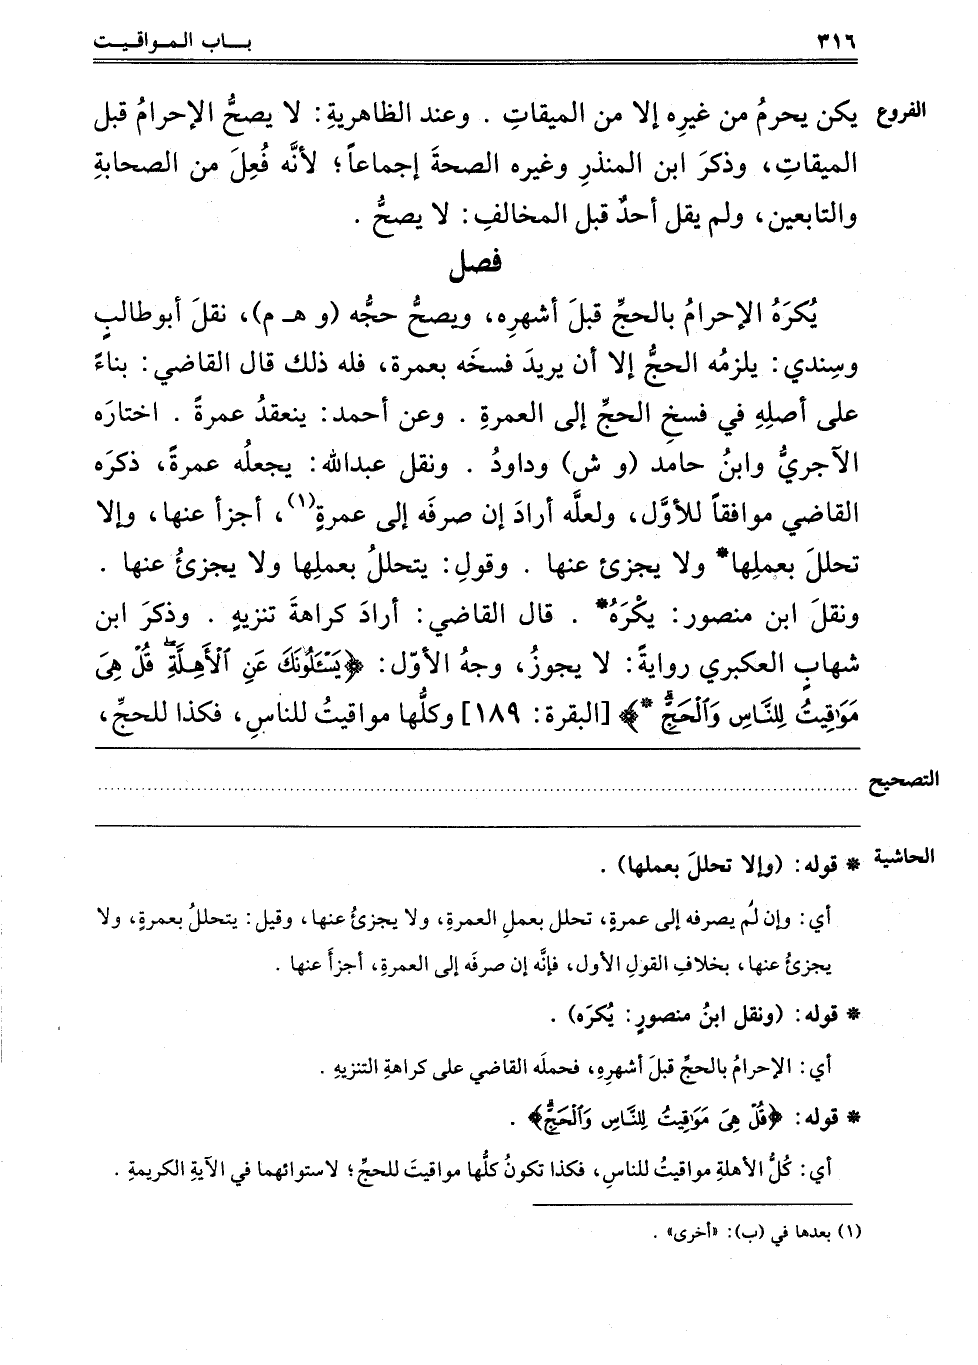 ٣١٦ بــاب الـمـواقـيـت
الفروع يكن يحرمُ من غيرِه إلا من الميقاتِ . وعند الظاهريةِ: لا يصحُّ الإحرامُ قبل
الميقاتِ، وذكرَ ابن المنذرِ وغيره الصحةَ إجماعاً؛ لأنَّه فُعِلَ من الصحابةِ
والتابعين، ولم يقل أحدٌ قبل المخالفِ: لا يصحُّ .
فصل
يُكرَهُ الإحرامُ بالحجِّ قبلَ أشهرِه، ويصحُّ حجُّه (و هـ م)، نقلَ أبوطالبٍ
وسِندي: يلزمُه الحجُّ إلا أن يريدَ فسخَه بعمرة، فله ذلك قال القاضي: بناءً
على أصلِهِ في فسخِ الحجِّ إلى العمرةِ . وعن أحمد: ينعقدُ عمرةً . اختارَه
الآجريُّ وابنُ حامد (و ش) وداودُ . ونقل عبدالله: يجعلُه عمرةً، ذكرَه
القاضي موافقاً للأوَّل، ولعلَّه أرادَ إن صرفَه إلى عمرةٍ(١)، أجزأ عنها، وإلا
تحللَ بعملِها* ولا يجزئ عنها . وقولِ: يتحللُ بعملِها ولا يجزئُ عنها .
ونقلَ ابن منصور: يكْرَهُ* . قال القاضي: أرادَ كراهةَ تنزيهٍ . وذكرَ ابن
شهابٍ العكبري روايةً: لا يجوزُ، وجهُ الأوّل: ﴿يَسْـَٔلُونَكَ عَنِ ٱلْأَهِلَّةِۖ قُلْ هِىَ
مَوَٰقِيتُ لِلنَّاسِ وَٱلْحَجِّۗ*﴾ [البقرة: ١٨٩] وكلُّها مواقيتُ للناسِ، فكذا للحجِّ،
التصحيح ..........................................................................
الحاشية * قوله: (وإلا تحللَ بعملها) .
أي: وإن لُم يصرفه إلى عمرةٍ، تحلل بعملِ العمرةِ، ولا يجزئُ عنها، وقيل: يتحللُ بعمرةٍ، ولا
يجزئُ عنها، بخلافِ القولِ الأول، فإنَّه إن صرفَه إلى العمرةِ، أجزأَ عنها .
* قوله: (ونقل ابنُ منصورٍ: يُكرَه) .
أي: الإحرامُ بالحجِّ قبلَ أشهرِهِ، فحملَه القاضي على كراهةِ التنزيهِ .
* قوله: ﴿قُلْ هِىَ مَوَٰقِيتُ لِلنَّاسِ وَٱلْحَجِّۗ﴾ .
أي: كُلُّ الأهلةِ مواقيتُ للناسِ، فكذا تكونُ كلُّها مواقيتَ للحجِّ؛ لاستوائهما في الآيةِ الكريمةِ .
(١) بعدها في (ب): «أخرى» .